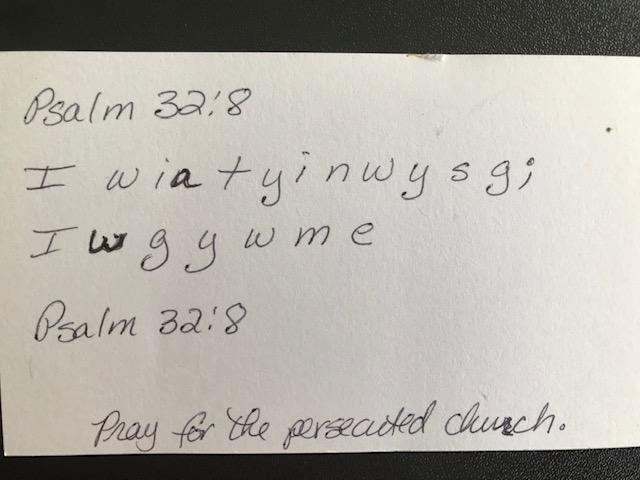 Psalm 32:8
I w i a t y i n w y s g;
I w g y w m e
Psalm 32:8
Pray for the persecuted church.